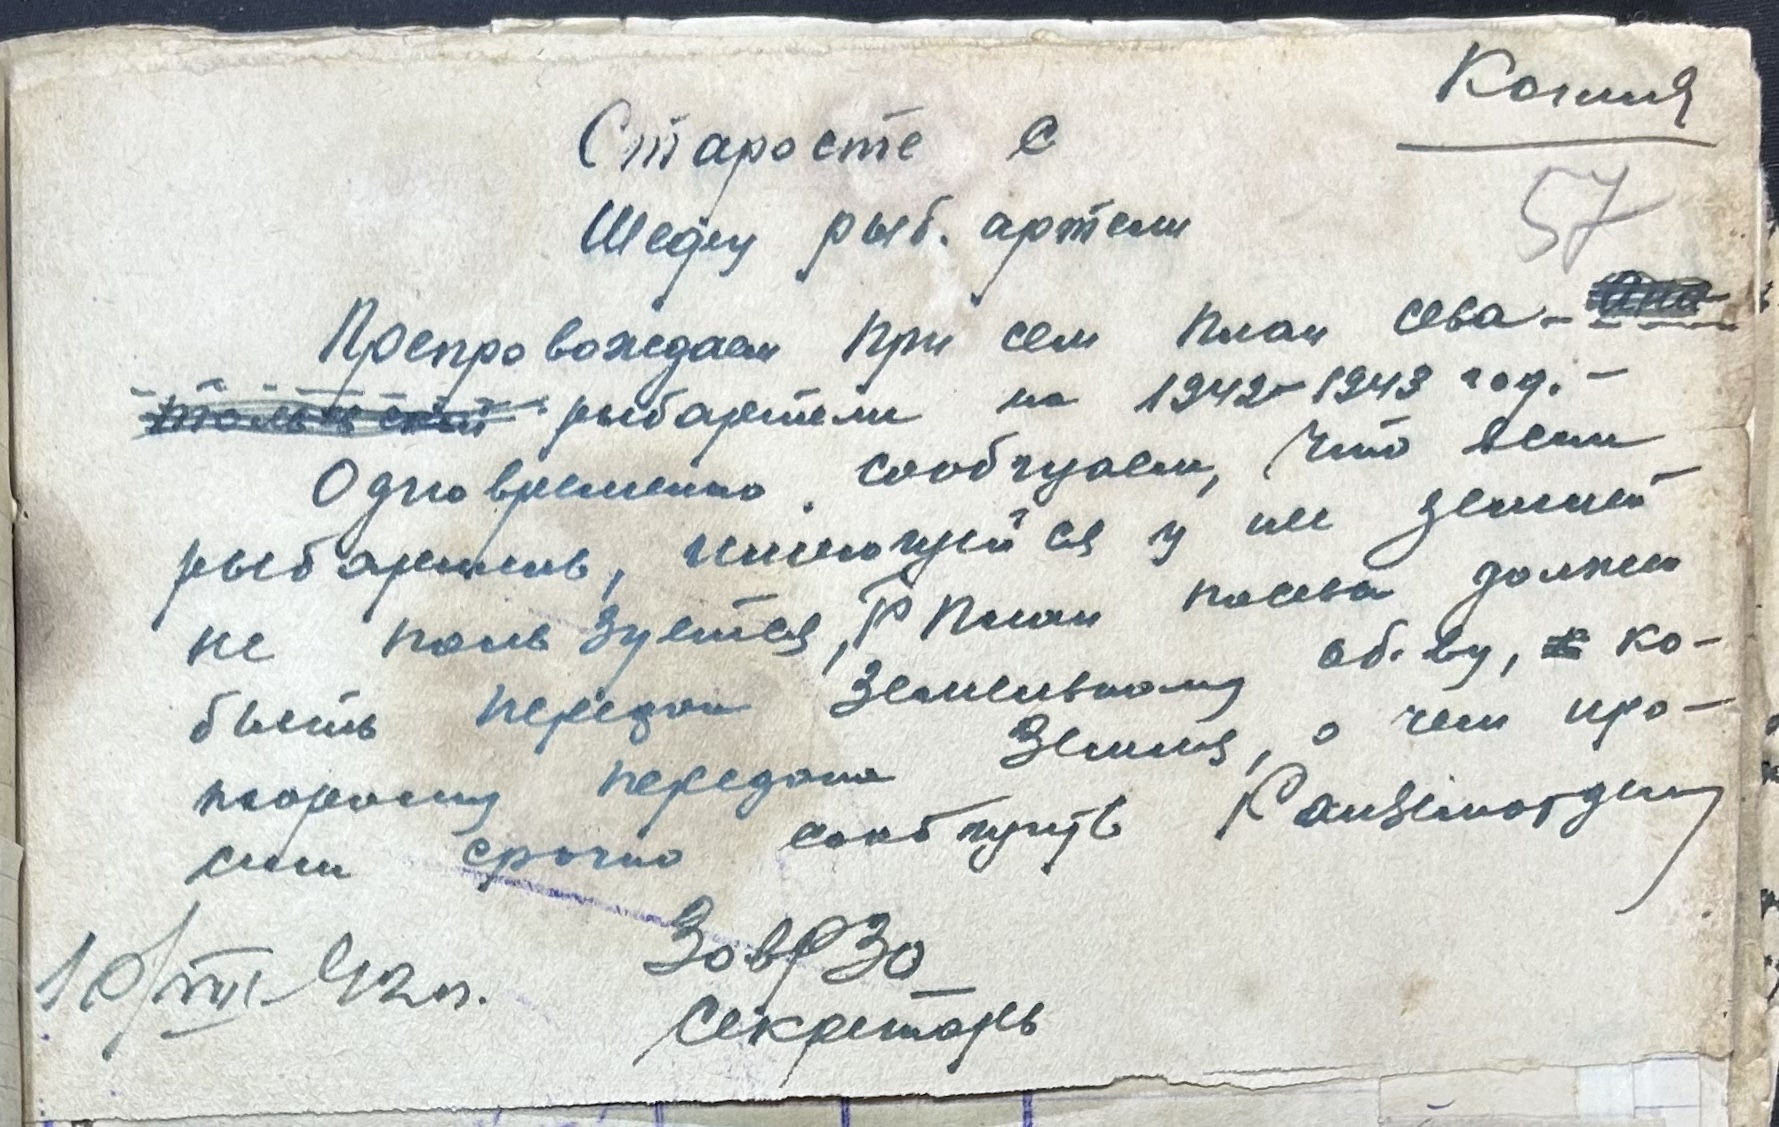 Копия
Старосте с
57
Шефу рыб. артели
Препровождаем при сем план сева - Ана-
тольевский рыбартели на 1942-1943 год. -
Одновременно сообщаем, что если
рыбартель, имеющийся у ней землей
не пользуется, план посева должен
быть передан Земельному об-ву, ко-
торому передана Земля, о чем про-
сим срочно сообщить
ЗавРЗО
10/VIII-42 г.
Секретарь